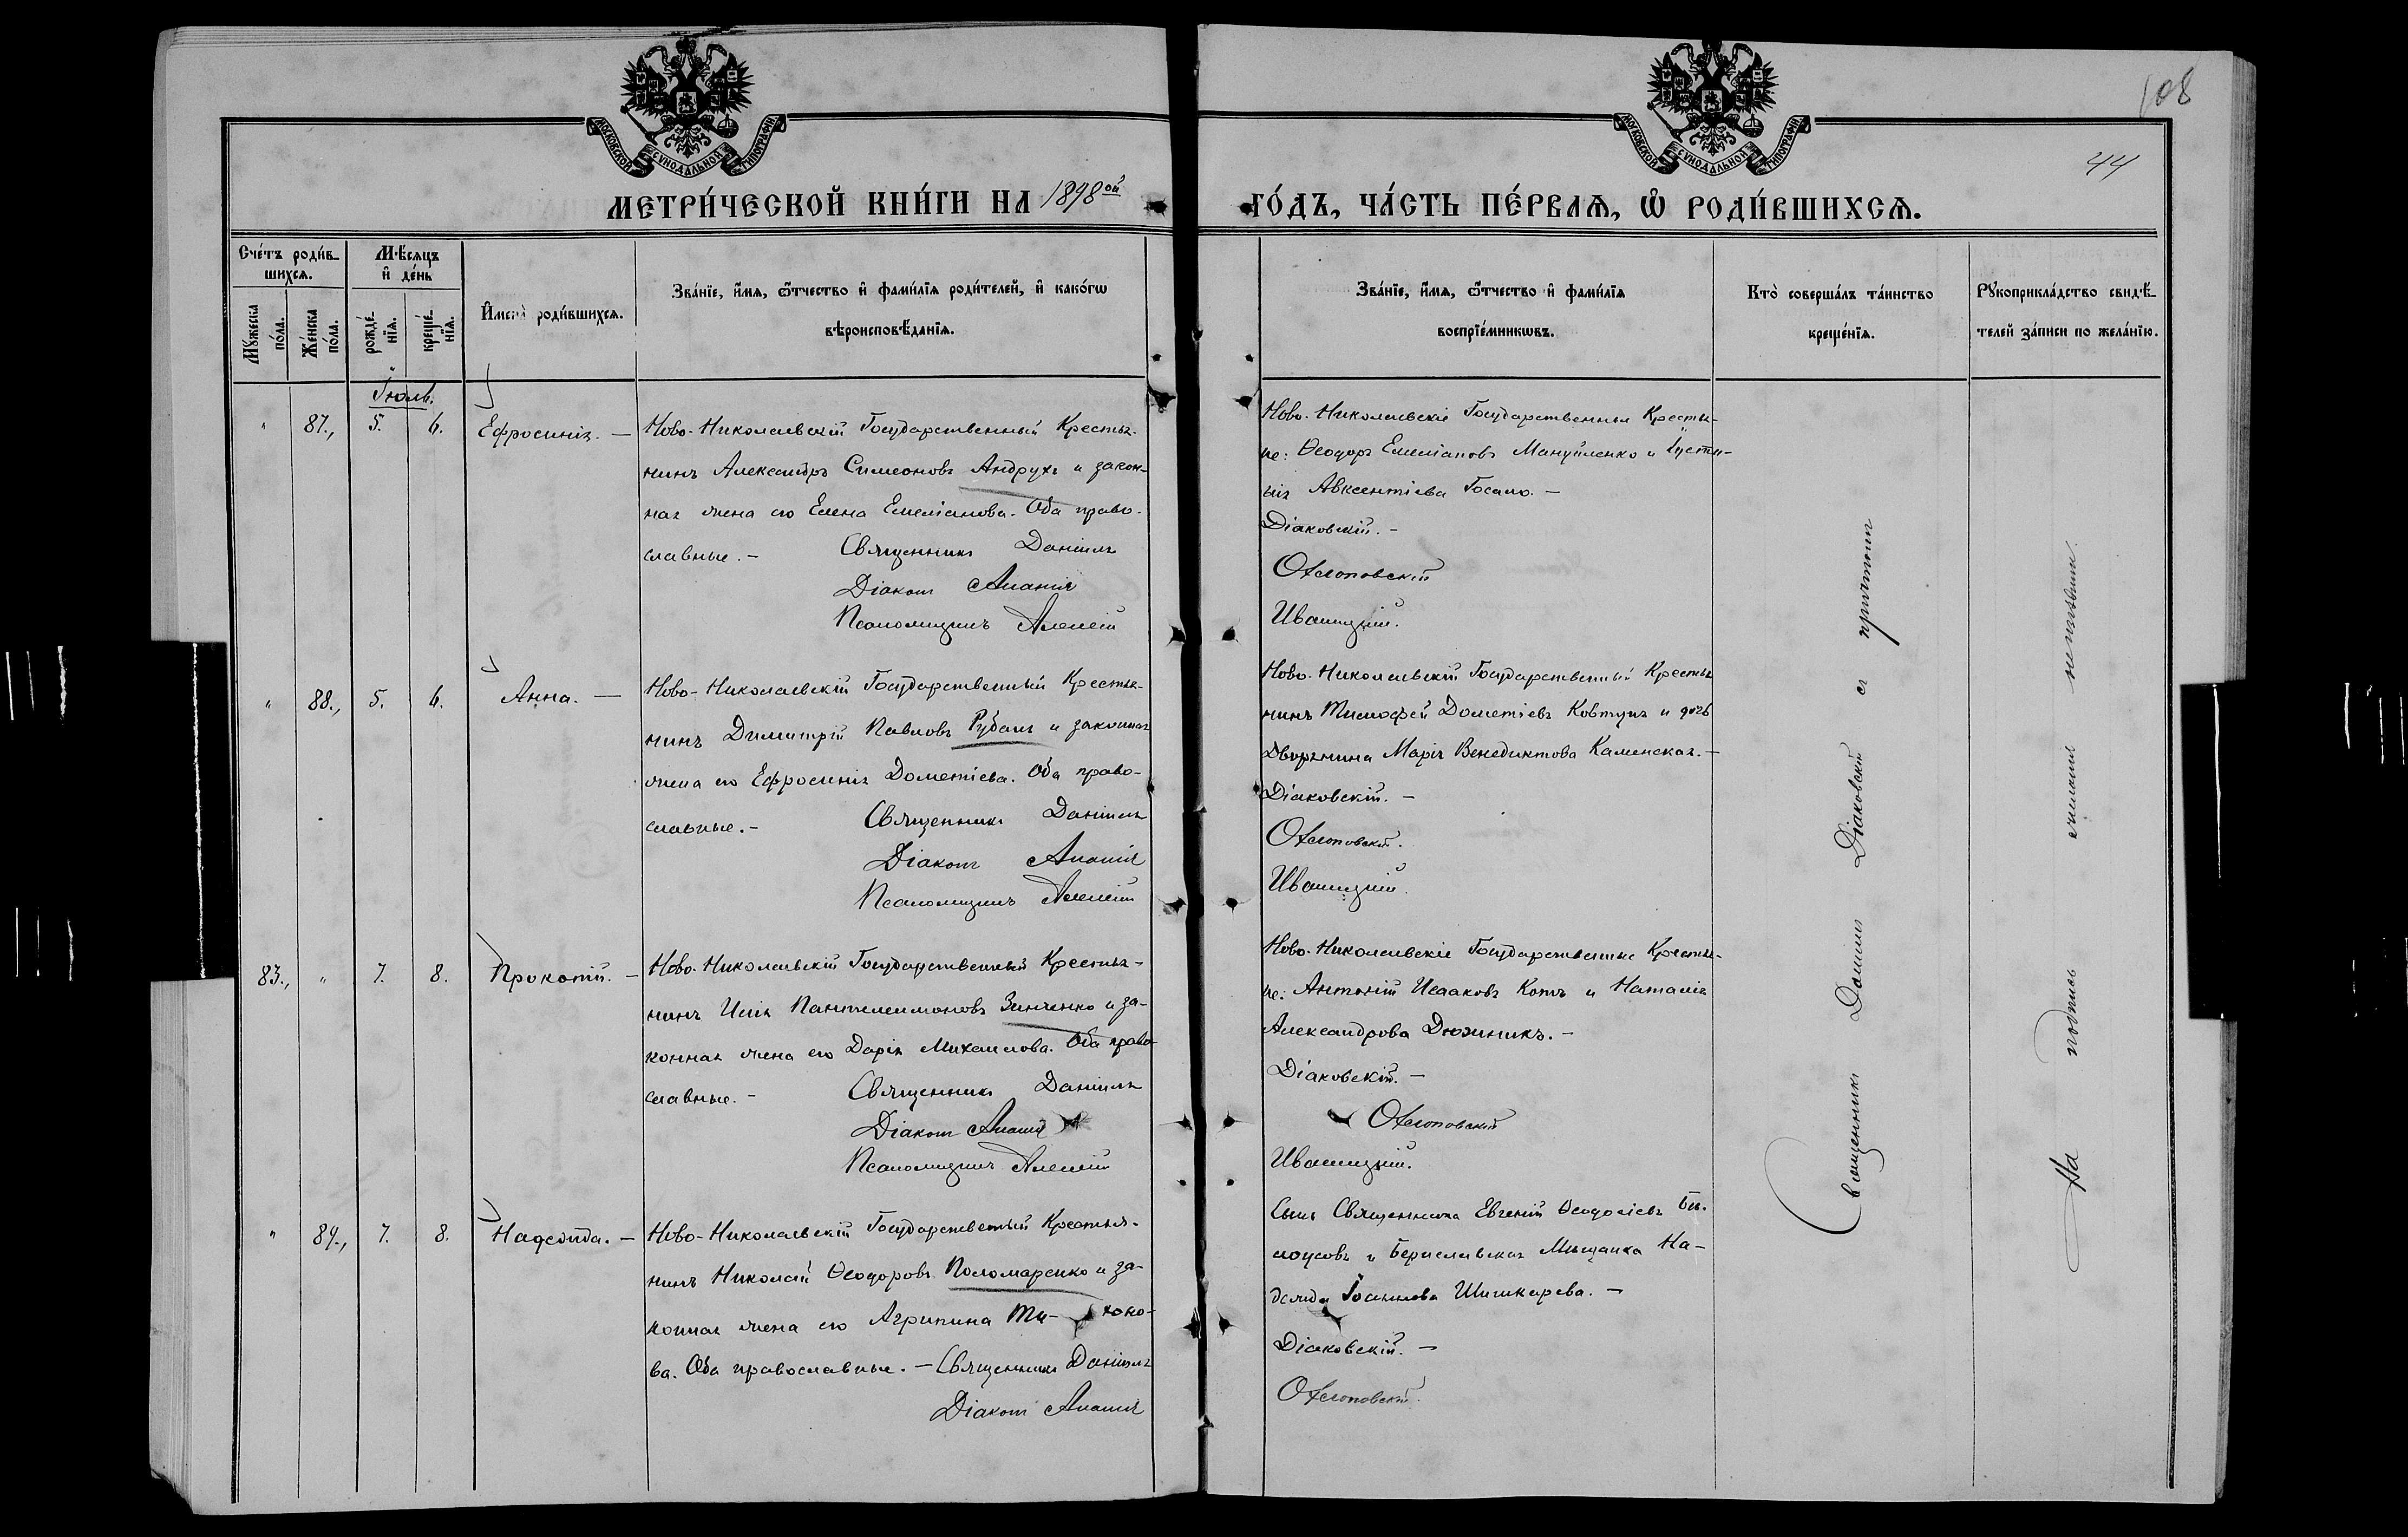 108
44
МОСКОВСКОЙ СѴНОДАЛЬНОЙ ТИПОГРАФІИ
МОСКОВСКОЙ СѴНОДАЛЬНОЙ ТИПОГРАФІИ
МЕТРИ́ЧЕСКОЙ КНИ́ГИ НА 1898ой ГО́ДЪ, ЧА́СТЬ ПЕ́РВАѦ, Ѡ РОДИ́ВШИХСѦ.
Сче́тъ роди́в-
шихся.
Мѣ́сяцъ
и҆ де́нь
Му́жеска
по́ла.
Же́нска
по́ла.
рожде́-
нїя.
креще́-
нїя.
И҆мена̀ роди́вшихся.
Зва́нїе, и҆́мя, ѻ҆́тчество и҆ фами́лїя роди́телей, и҆ како́гѡ
вѣроисповѣ́данїя.
Зва́нїе, и҆́мя, ѻ҆́тчество и҆ фами́лїя
воспрїе́мникѡвъ.
Кто̀ соверша́лъ та́инство
креще́нїя.
Рꙋкоприкла́дство свидѣ́-
телей за́писи по жела́нїю.
Іюль.
" 87., 5. 6. Ефросинія. —
Ново-Николаевскій Государственный Крестья-
нинъ Александръ Симеоновъ Андрухъ и закон-
ная жена его Елена Емеліанова. Оба право-
славные. — Священникъ Даніилъ
Діаконъ Ананія
Псаломщикъ Алексій
Ново-Николаевскіе Государственные Крестья-
не: Ѳеодоръ Емеліановъ Мануйленко и Іусти-
нія Авксентіева Госало. —
Діаковскій. —
Охлоповскій
Иваницкій.
" 88., 5. 6. Анна. —
Ново-Николаевскій Государственный Крестья-
нинъ Димитрій Павловъ Рубанъ и законная
жена его Ефросинія Дометіева. Оба право-
славные. — Священникъ Даніилъ
Діаконъ Ананія
Псаломщикъ Алексій
Ново-Николаевскій Государственный Крестья
нинъ Тимофей Дометіевъ Ковтунъ и дочь
Дворянина Марія Венедиктова Каменская. —
Діаковскій. —
Охлоповскій.
Иваницкій.
83., " 7. 8. Прокопій. —
Ново-Николаевскій Государственный Крестья-
нинъ Илія Пантелеимоновъ Зинченко и за-
конная жена его Дарія Михаилова. Оба право-
славные. — Священникъ Даніилъ
Діаконъ Ананія
Псаломщикъ Алексій
Ново-Николаевскіе Государственные Крестья-
не: Антоній Исааковъ Котъ и Наталія
Александрова Дюжникъ. —
Діаковскій. —
Охлоповскій
Иваницкій.
" 89., 7. 8. Надежда. —
Ново-Николаевскій Государственный Крестья-
нинъ Николай Ѳеодоровъ Поломаренко и за-
конная жена его Агрипина Ти- хоно-
ва. Оба православные. — Священникъ Даніилъ
Діаконъ Ананія
Сынъ Священника Евгеній Ѳеодосіевъ Бѣ-
лоусовъ и Бериславская Мѣщанка На-
дежда Іоаннова Шишкарева. —
Діаковскій. —
Охлоповскій.
Священникъ Даніилъ Діаковскій съ причтомъ
На подпись желанія не изъявили.